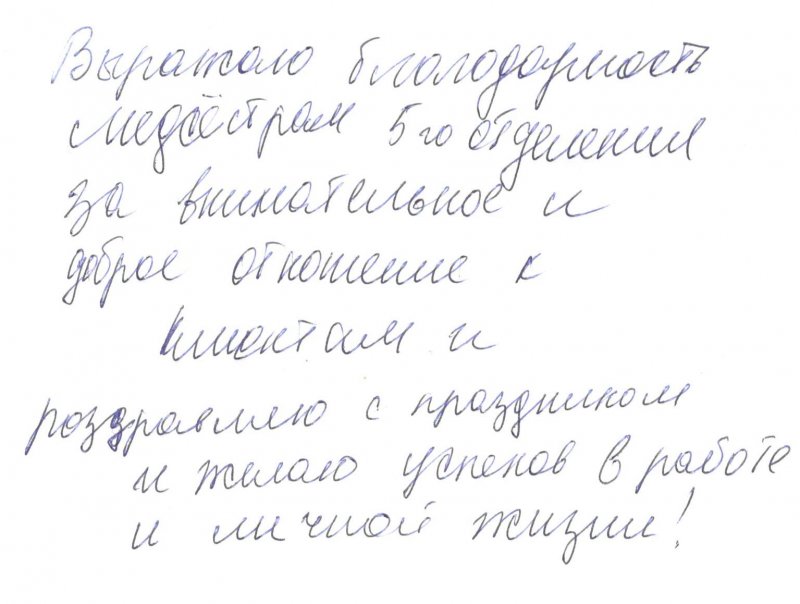 Выражаю благодарность
медсёстрам 5го отделения
за внимательное и
доброе отношение к
клиентам и
поздравляю с праздником
и желаю успехов в работе
и личной жизни!